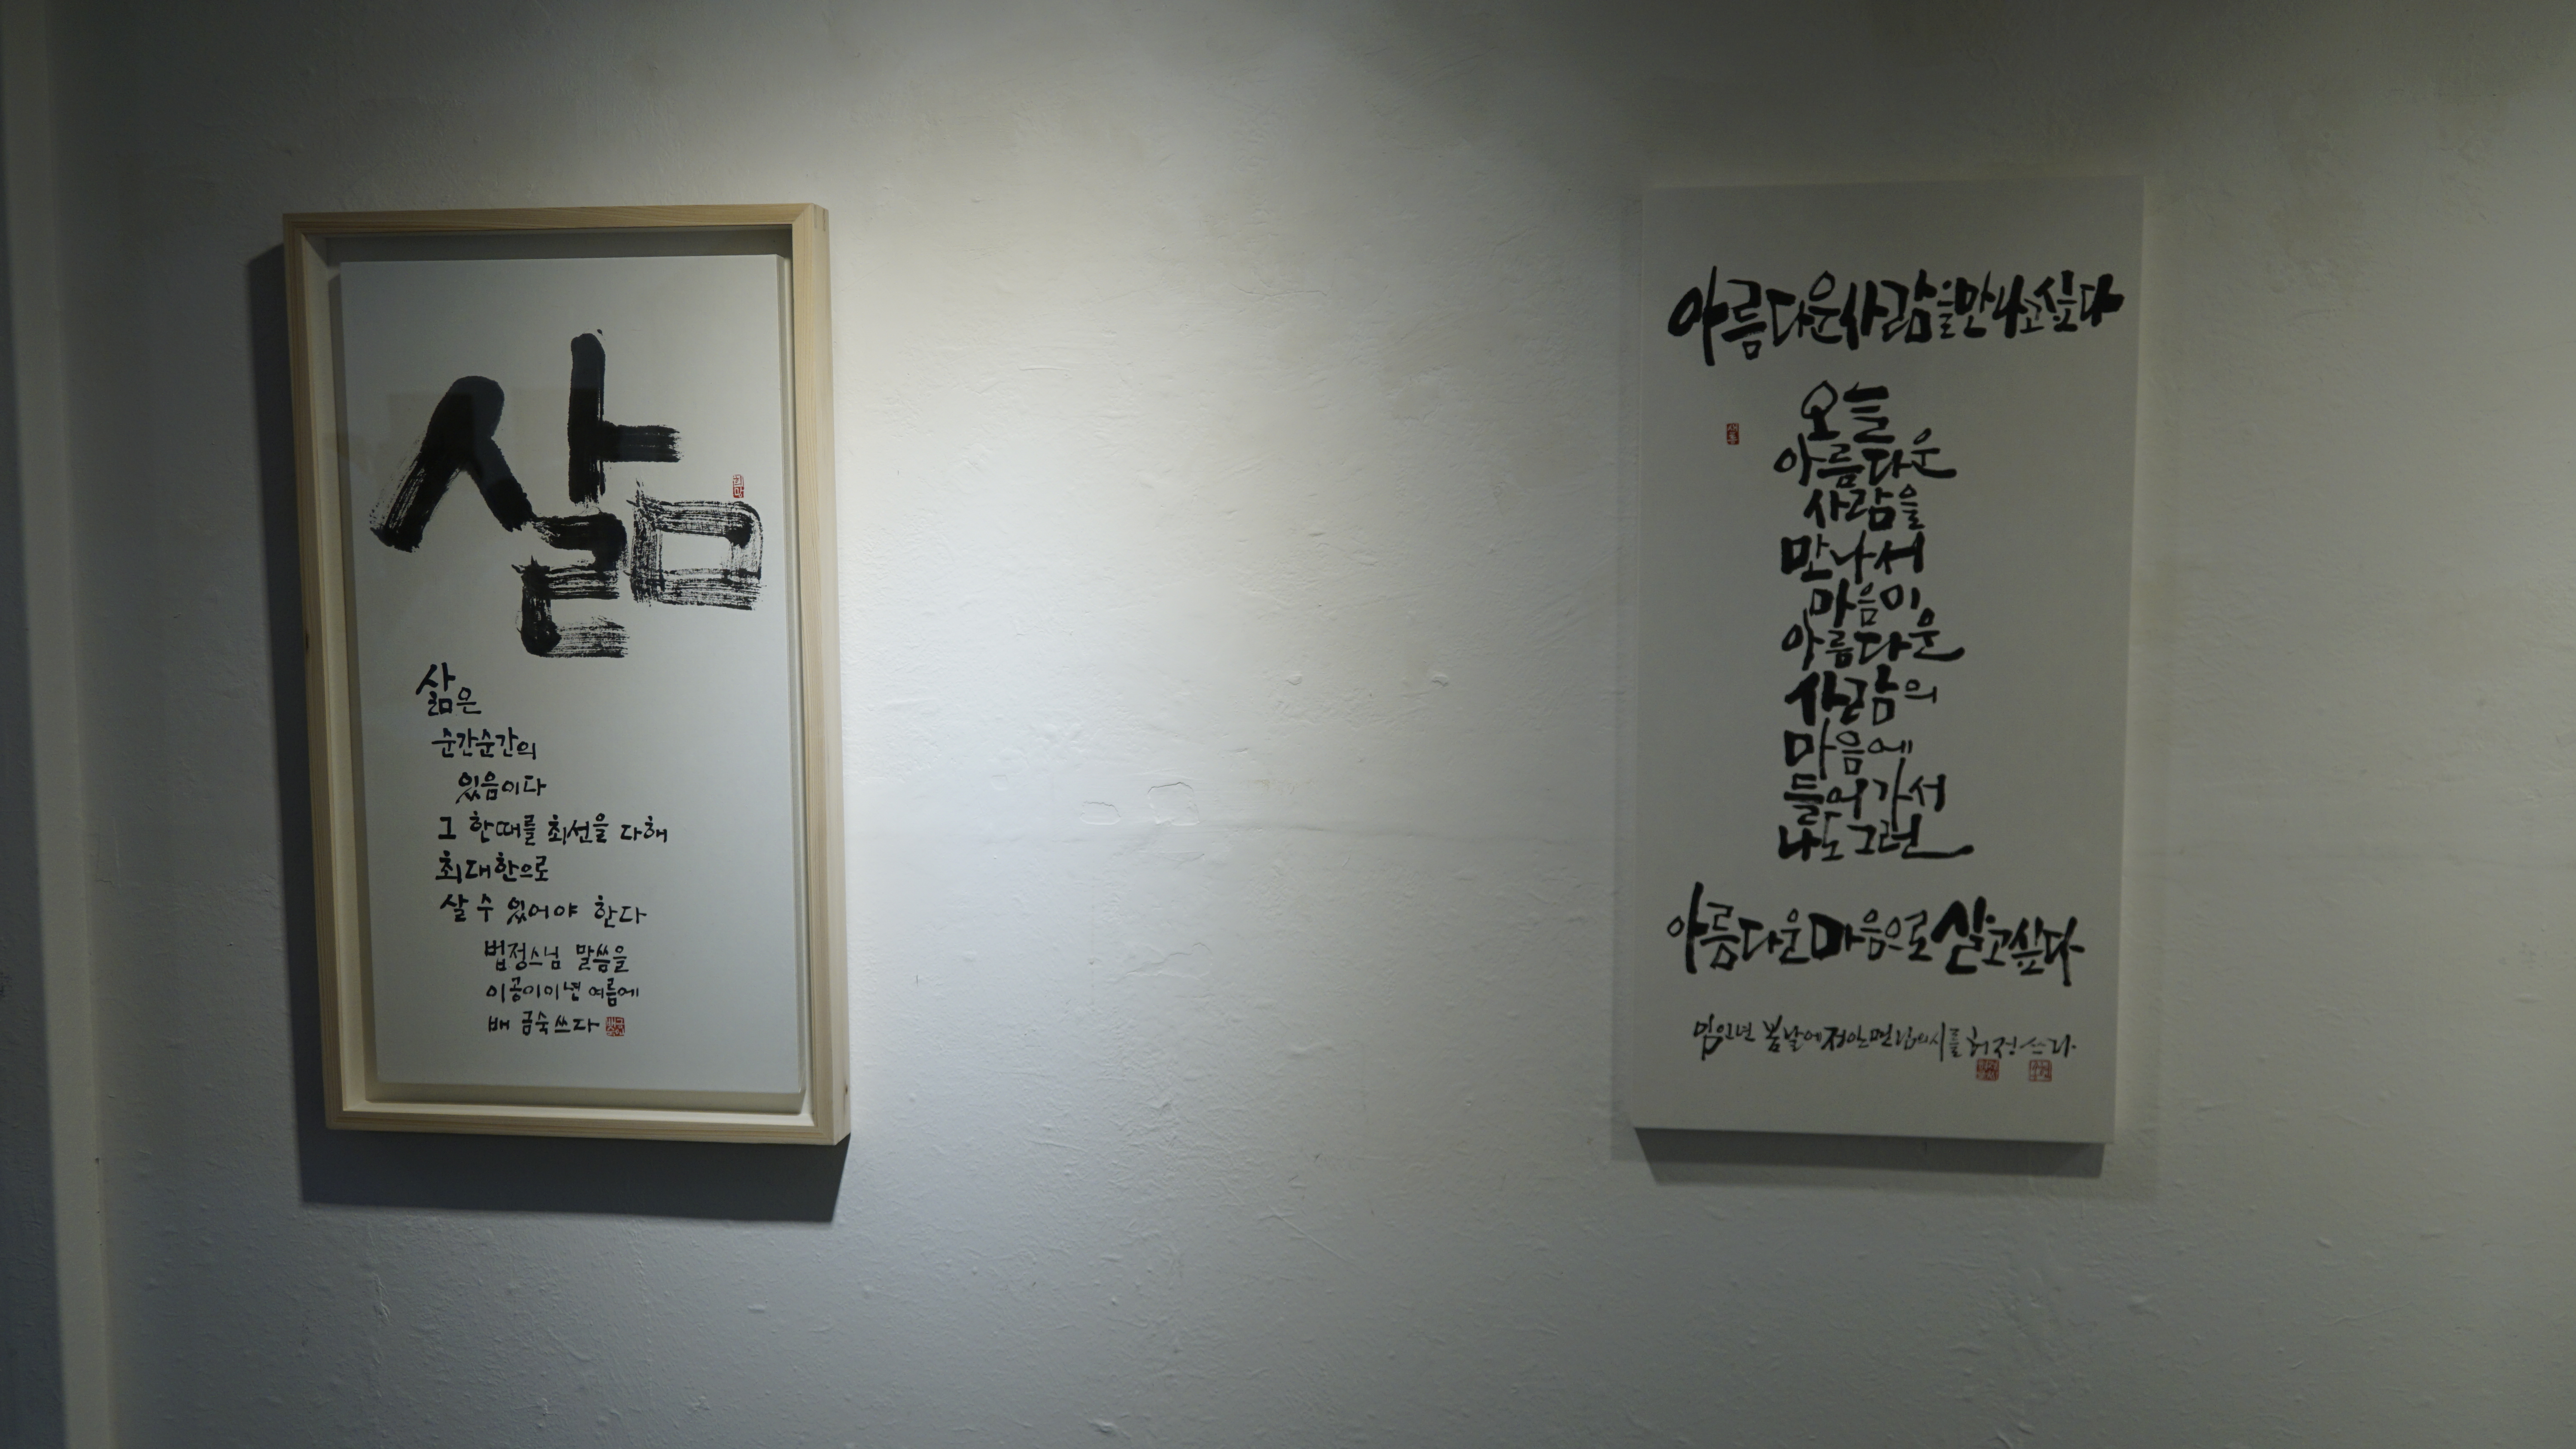 삶
삶은
순간순간의
있음이다
그 한때를 최선을 다해
최대한으로
살 수 있어야 한다
법정스님 말씀을
이공이이년 여름에
배 금숙 쓰다
아름다운사람을만나고싶다
오늘
아름다운
사람을
만나서
마음이
아름다운
사람의
마음에
들어가서
나도 그런
아름다운마음으로살고싶다
임인년 봄날에 정안면님의 시를 허정 쓰다